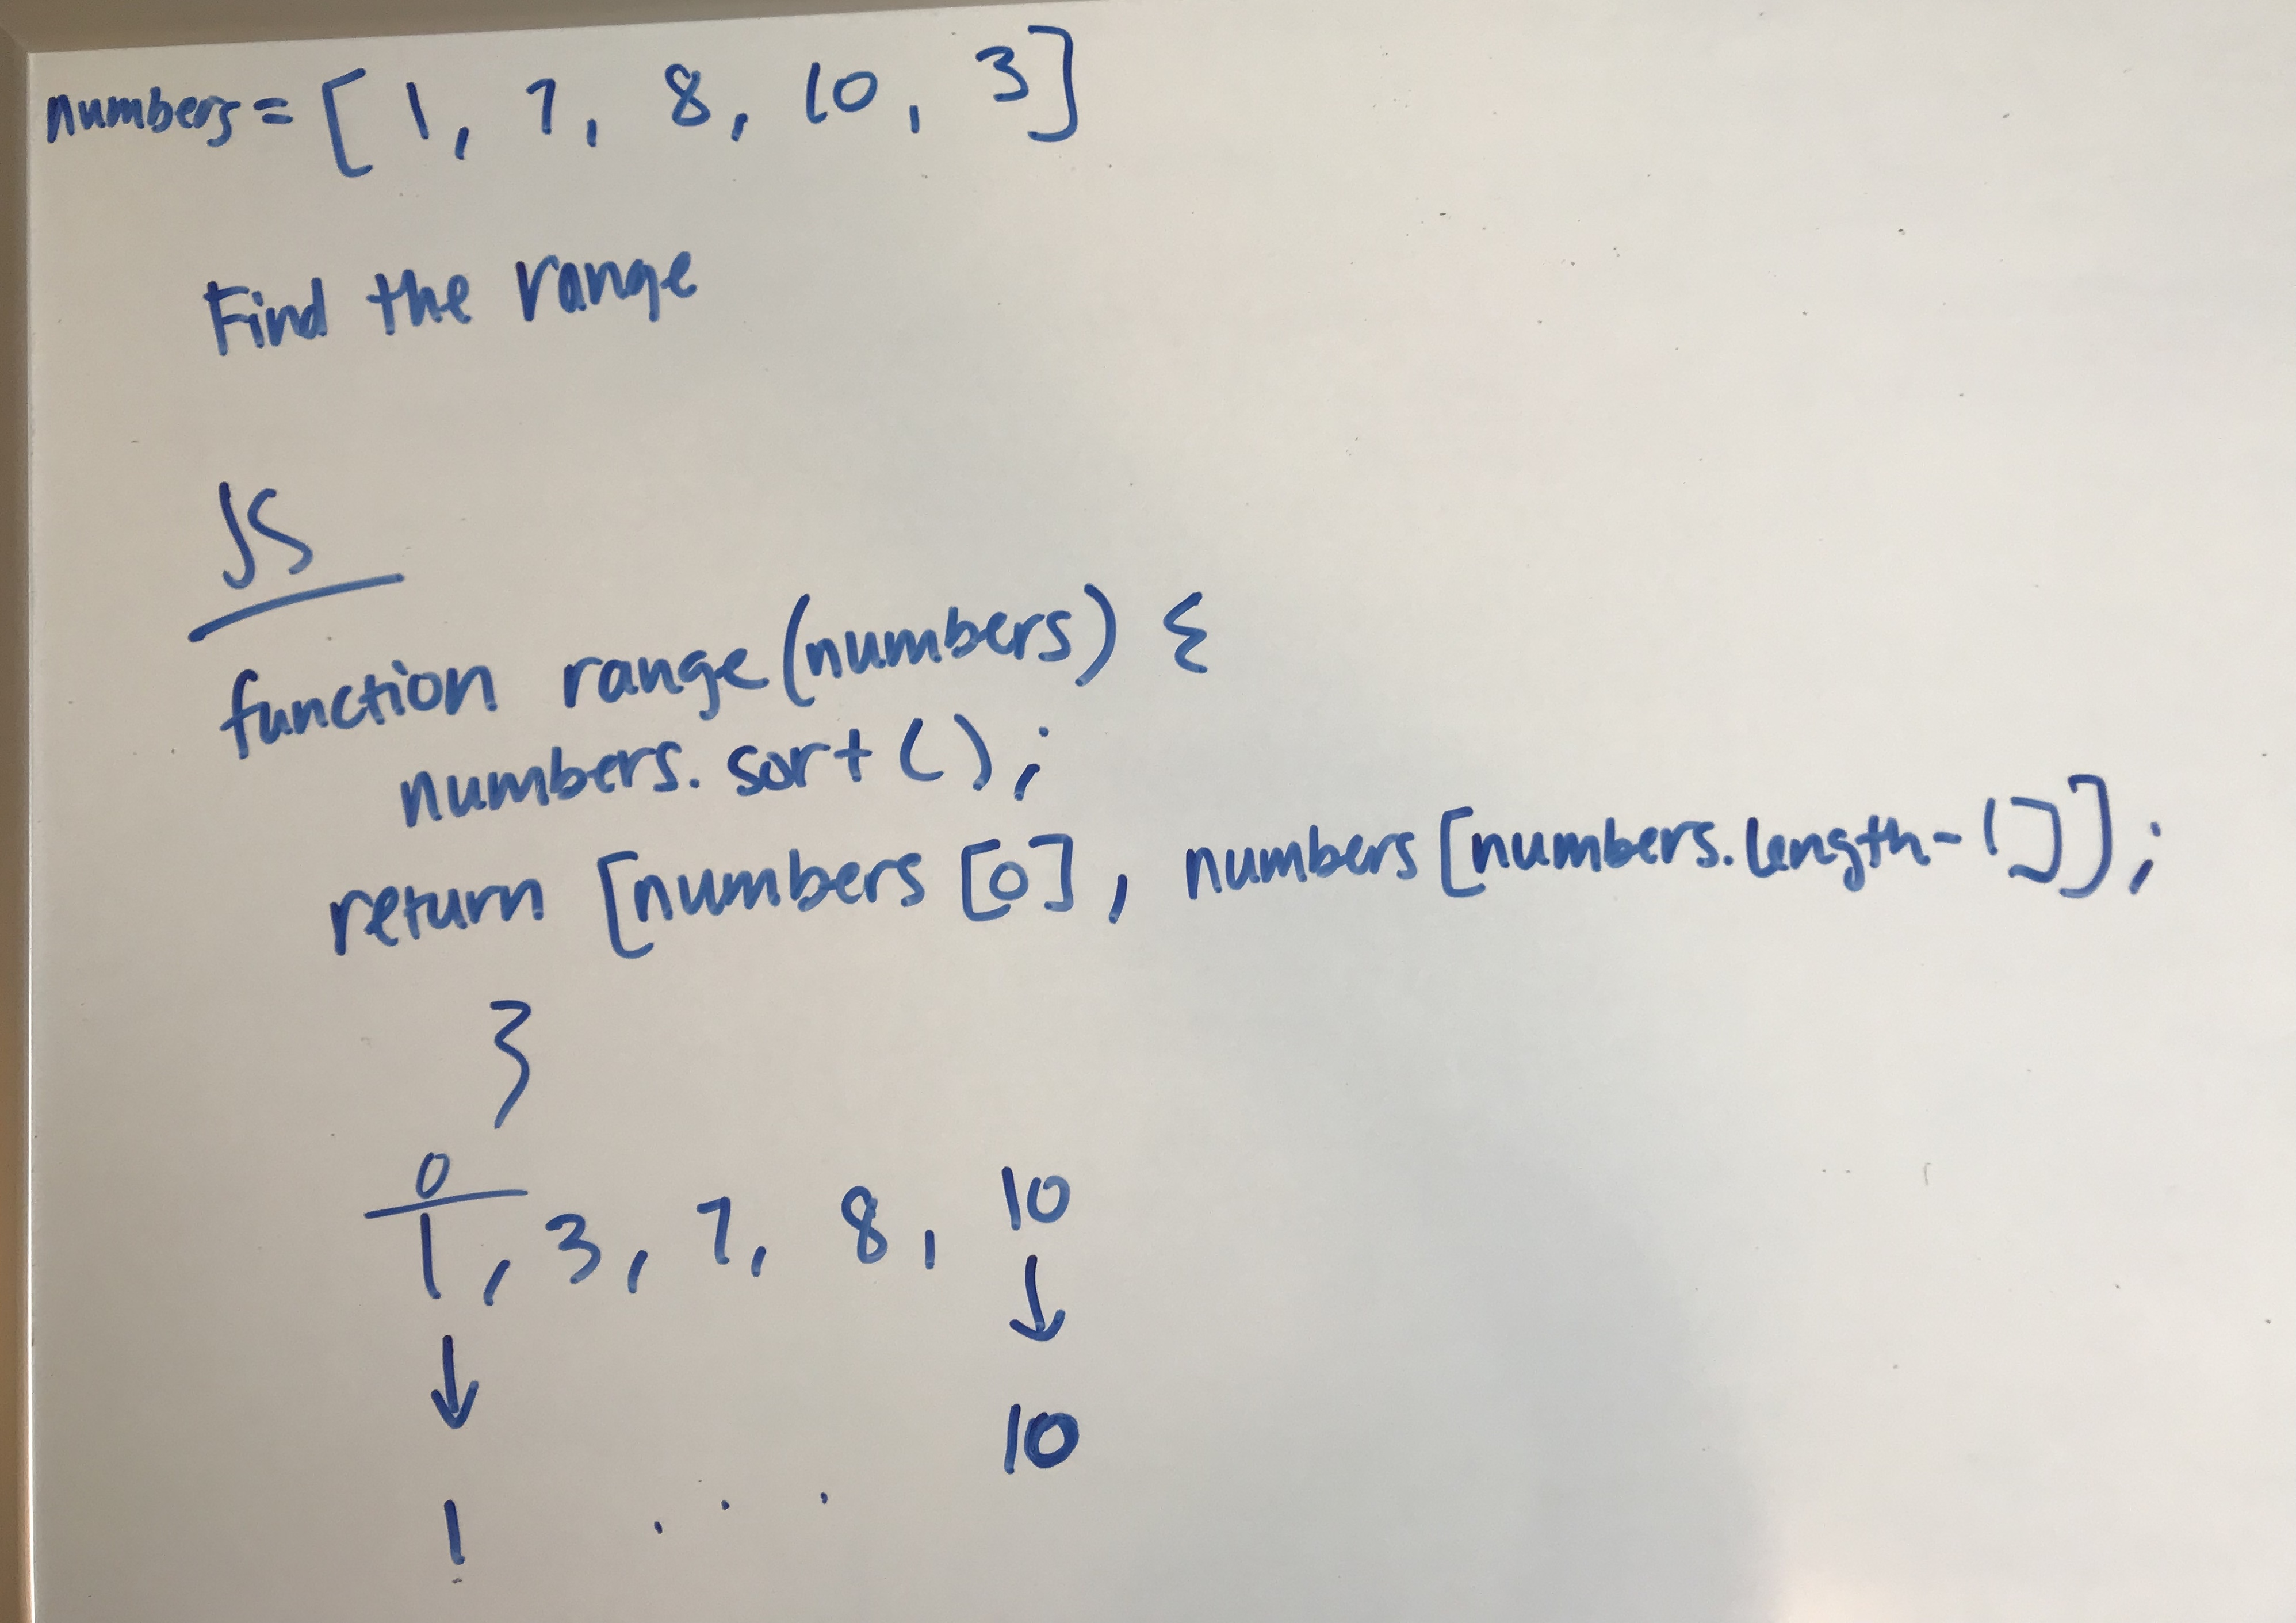 numbers = [ 1, 7, 8, 10, 3]
Find the range
JS
function range(numbers) {
numbers. sort();
return [numbers [0], numbers [numbers.length-1]];
}
0
1, 3, 7, 8, 10
10
1 . . .